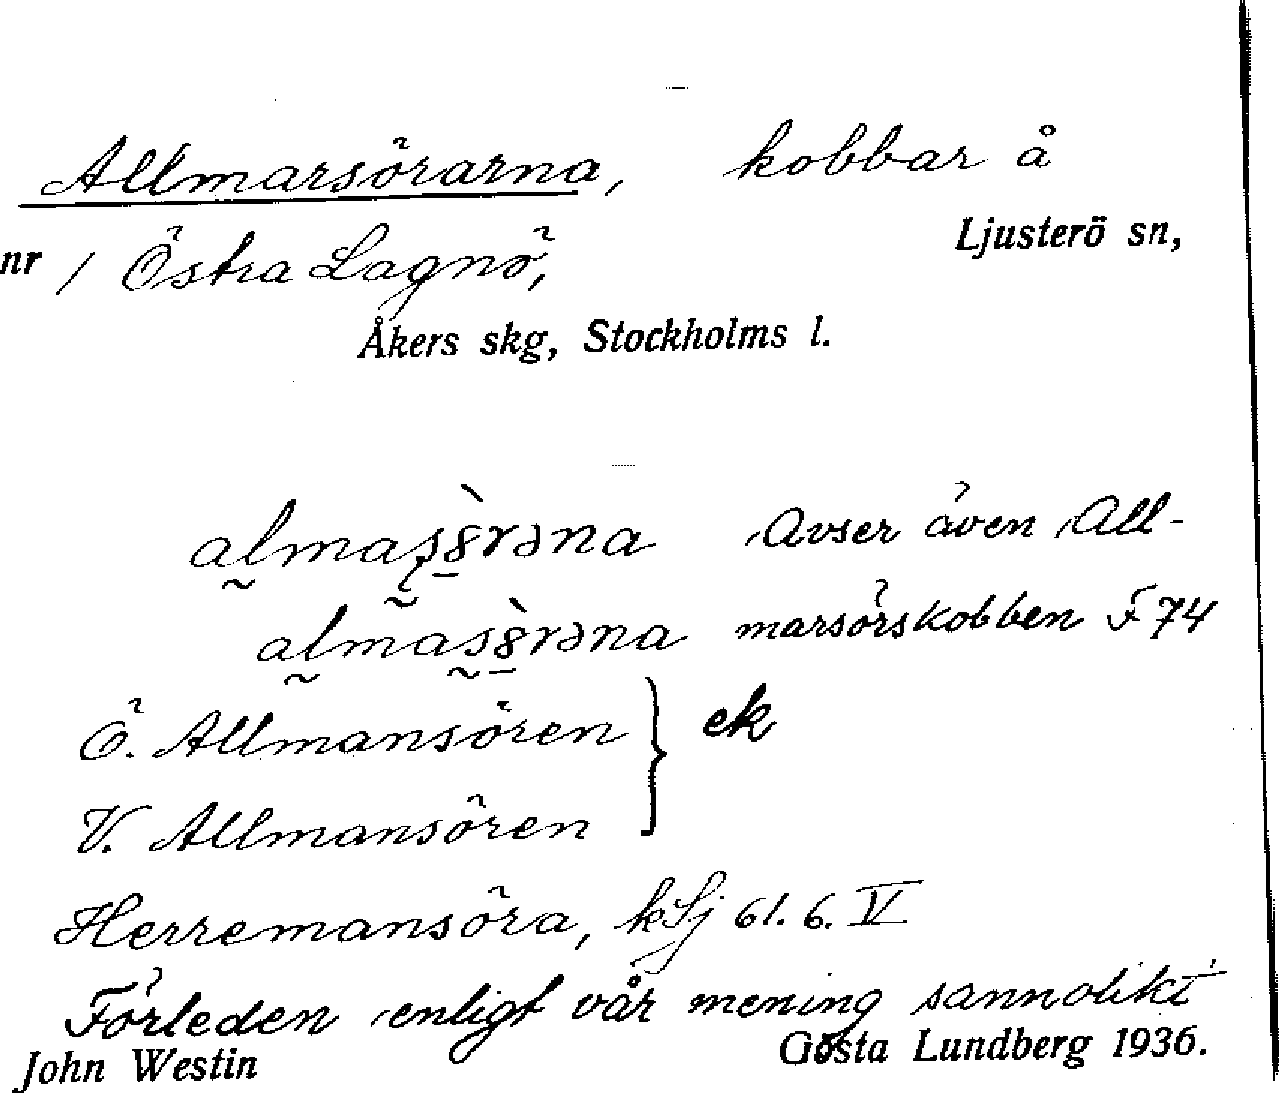 Allmarsörarna, kobbar å
Ljusterö sn,
nr / Östra Lagnö,
Åkers skg, Stockholms l.
Avser även All-
marsörskobben F 74
Ö. Allmansören } ek
V. Allmansören
Herremansöra, kSj 61. 6. V
Förleden enligt vår mening sannolikt
John Westin Gösta Lundberg 1936.